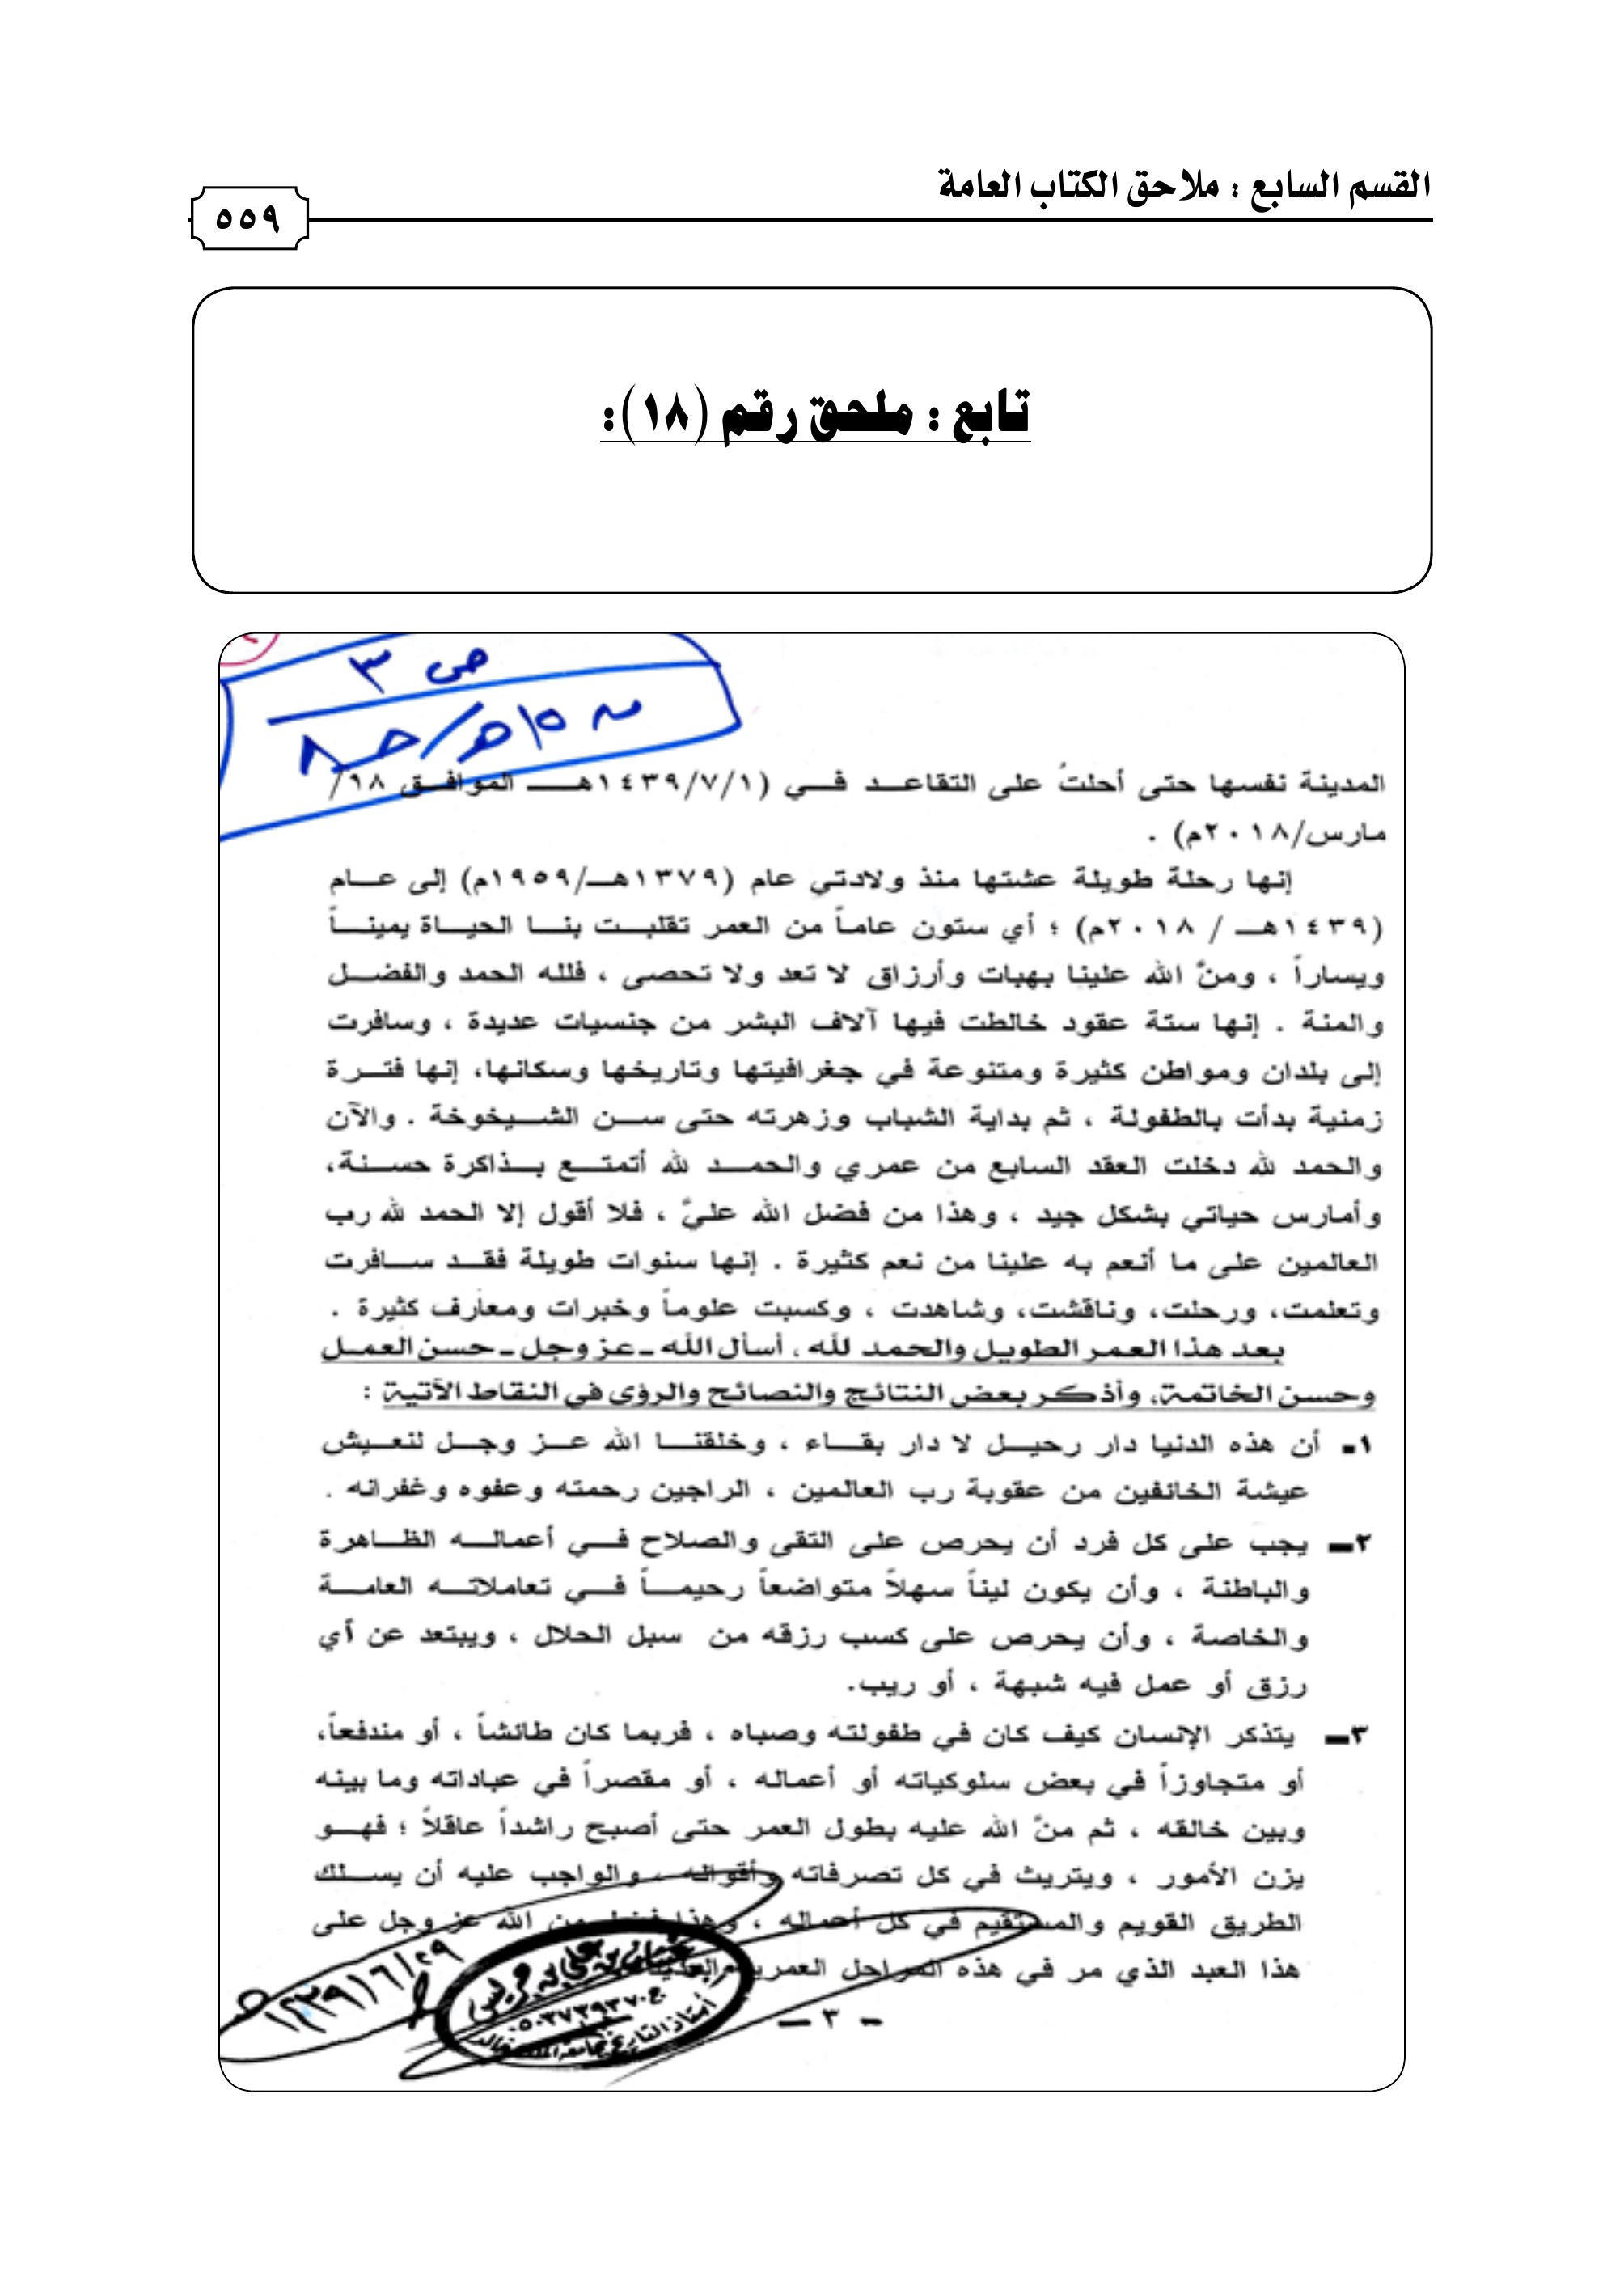 القسم السابع : ملاحق الكتاب العامة
٥٥٩
تابع : ملحق رقم (١٨):
ص ٣
المدينة نفسها حتى أحلتُ على التقاعد في (١٤٣٩/٧/١هـ الموافق ١٨/
مارس/٢٠١٨م) .
إنها رحلة طويلة عشتها منذ ولادتي عام (١٣٧٩هـ/١٩٥٩م) إلى عام
(١٤٣٩هـ / ٢٠١٨م) ؛ أي ستون عاماً من العمر تقلبت بنا الحياة يميناً
ويساراً ، ومنَّ الله علينا بهبات وأرزاق لا تعد ولا تحصى ، فلله الحمد والفضل
والمنة . إنها ستة عقود خالطت فيها آلاف البشر من جنسيات عديدة ، وسافرت
إلى بلدان ومواطن كثيرة ومتنوعة في جغرافيتها وتاريخها وسكانها، إنها فترة
زمنية بدأت بالطفولة ، ثم بداية الشباب وزهرته حتى سن الشيخوخة . والآن
والحمد لله دخلت العقد السابع من عمري والحمد لله أتمتع بذاكرة حسنة،
وأمارس حياتي بشكل جيد ، وهذا من فضل الله عليَّ ، فلا أقول إلا الحمد لله رب
العالمين على ما أنعم به علينا من نعم كثيرة . إنها سنوات طويلة فقد سافرت
وتعلمت، ورحلت، وناقشت، وشاهدت ، وكسبت علوماً وخبرات ومعارف كثيرة .
بعد هذا العمر الطويل والحمد لله ، أسأل الله ـ عز وجل ـ حسن العمل
وحسن الخاتمة، وأذكر بعض النتائج والنصائح والرؤى في النقاط الآتية :
١ـ أن هذه الدنيا دار رحيل لا دار بقاء ، وخلقنا الله عز وجل لنعيش
عيشة الخائفين من عقوبة رب العالمين ، الراجين رحمته وعفوه وغفرانه .
٢ـ يجب على كل فرد أن يحرص على التقى والصلاح في أعماله الظاهرة
والباطنة ، وأن يكون ليناً سهلاً متواضعاً رحيماً في تعاملاته العامة
والخاصة ، وأن يحرص على كسب رزقه من سبل الحلال ، ويبتعد عن أي
رزق أو عمل فيه شبهة ، أو ريب.
٣ـ يتذكر الإنسان كيف كان في طفولته وصباه ، فربما كان طائشاً ، أو مندفعاً،
أو متجاوزاً في بعض سلوكياته أو أعماله ، أو مقصراً في عباداته وما بينه
وبين خالقه ، ثم منَّ الله عليه بطول العمر حتى أصبح راشداً عاقلاً ؛ فهو
يزن الأمور ، ويتريث في كل تصرفاته وأقواله ، والواجب عليه أن يسلك
الطريق القويم والمستقيم في كل أعماله ، وهذا فضل من الله عز وجل على
هذا العبد الذي مر في هذه المراحل العمرية
- ٣ -